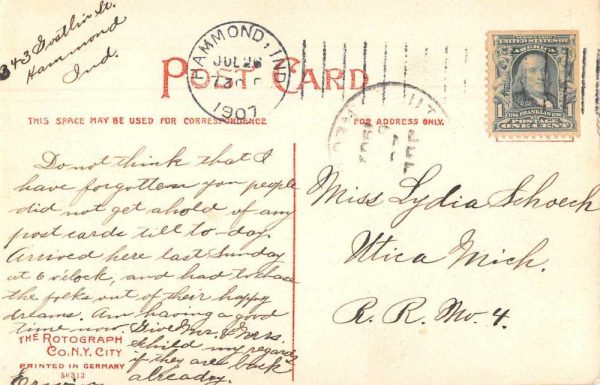 343 Gostlin St.
Hammond
Ind.
HAMMOND, IND.
JUL 26
1907
POST CARD
THIS SPACE MAY BE USED FOR CORRESPONDENCE.
FOR ADDRESS ONLY.
UNITED STATES OF
AMERICA
FRANKLIN
POSTAGE
1 ONE CENT
Do not think that I
have forgotten you people
did not get ahold of any
post cards till to-day.
Arrived here last Sunday
at 6 o'clock, and had to chase
the folks out of their happy
dreams. Am having a good
time now. Give Mr. & Mrs.
Schild my regards
if they are back
already.
Miss Lydia Schoech
Utica Mich.
R. R. No. 4.
THE ROTOGRAPH
CO. N.Y. CITY
PRINTED IN GERMANY
56313